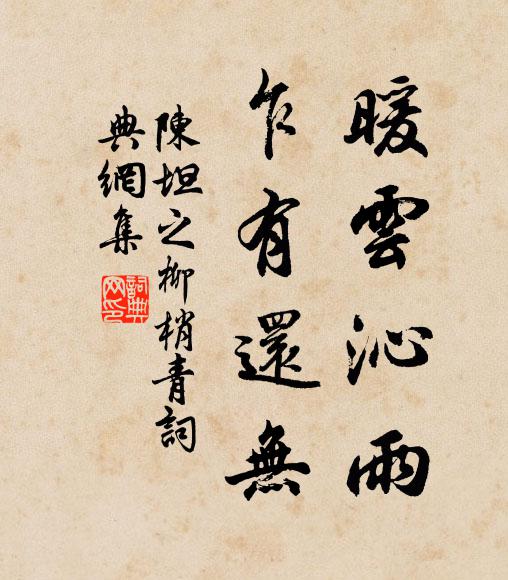 暖雲沁雨
乍有還無
陳坦之柳梢青詞
典網集
詞典網印